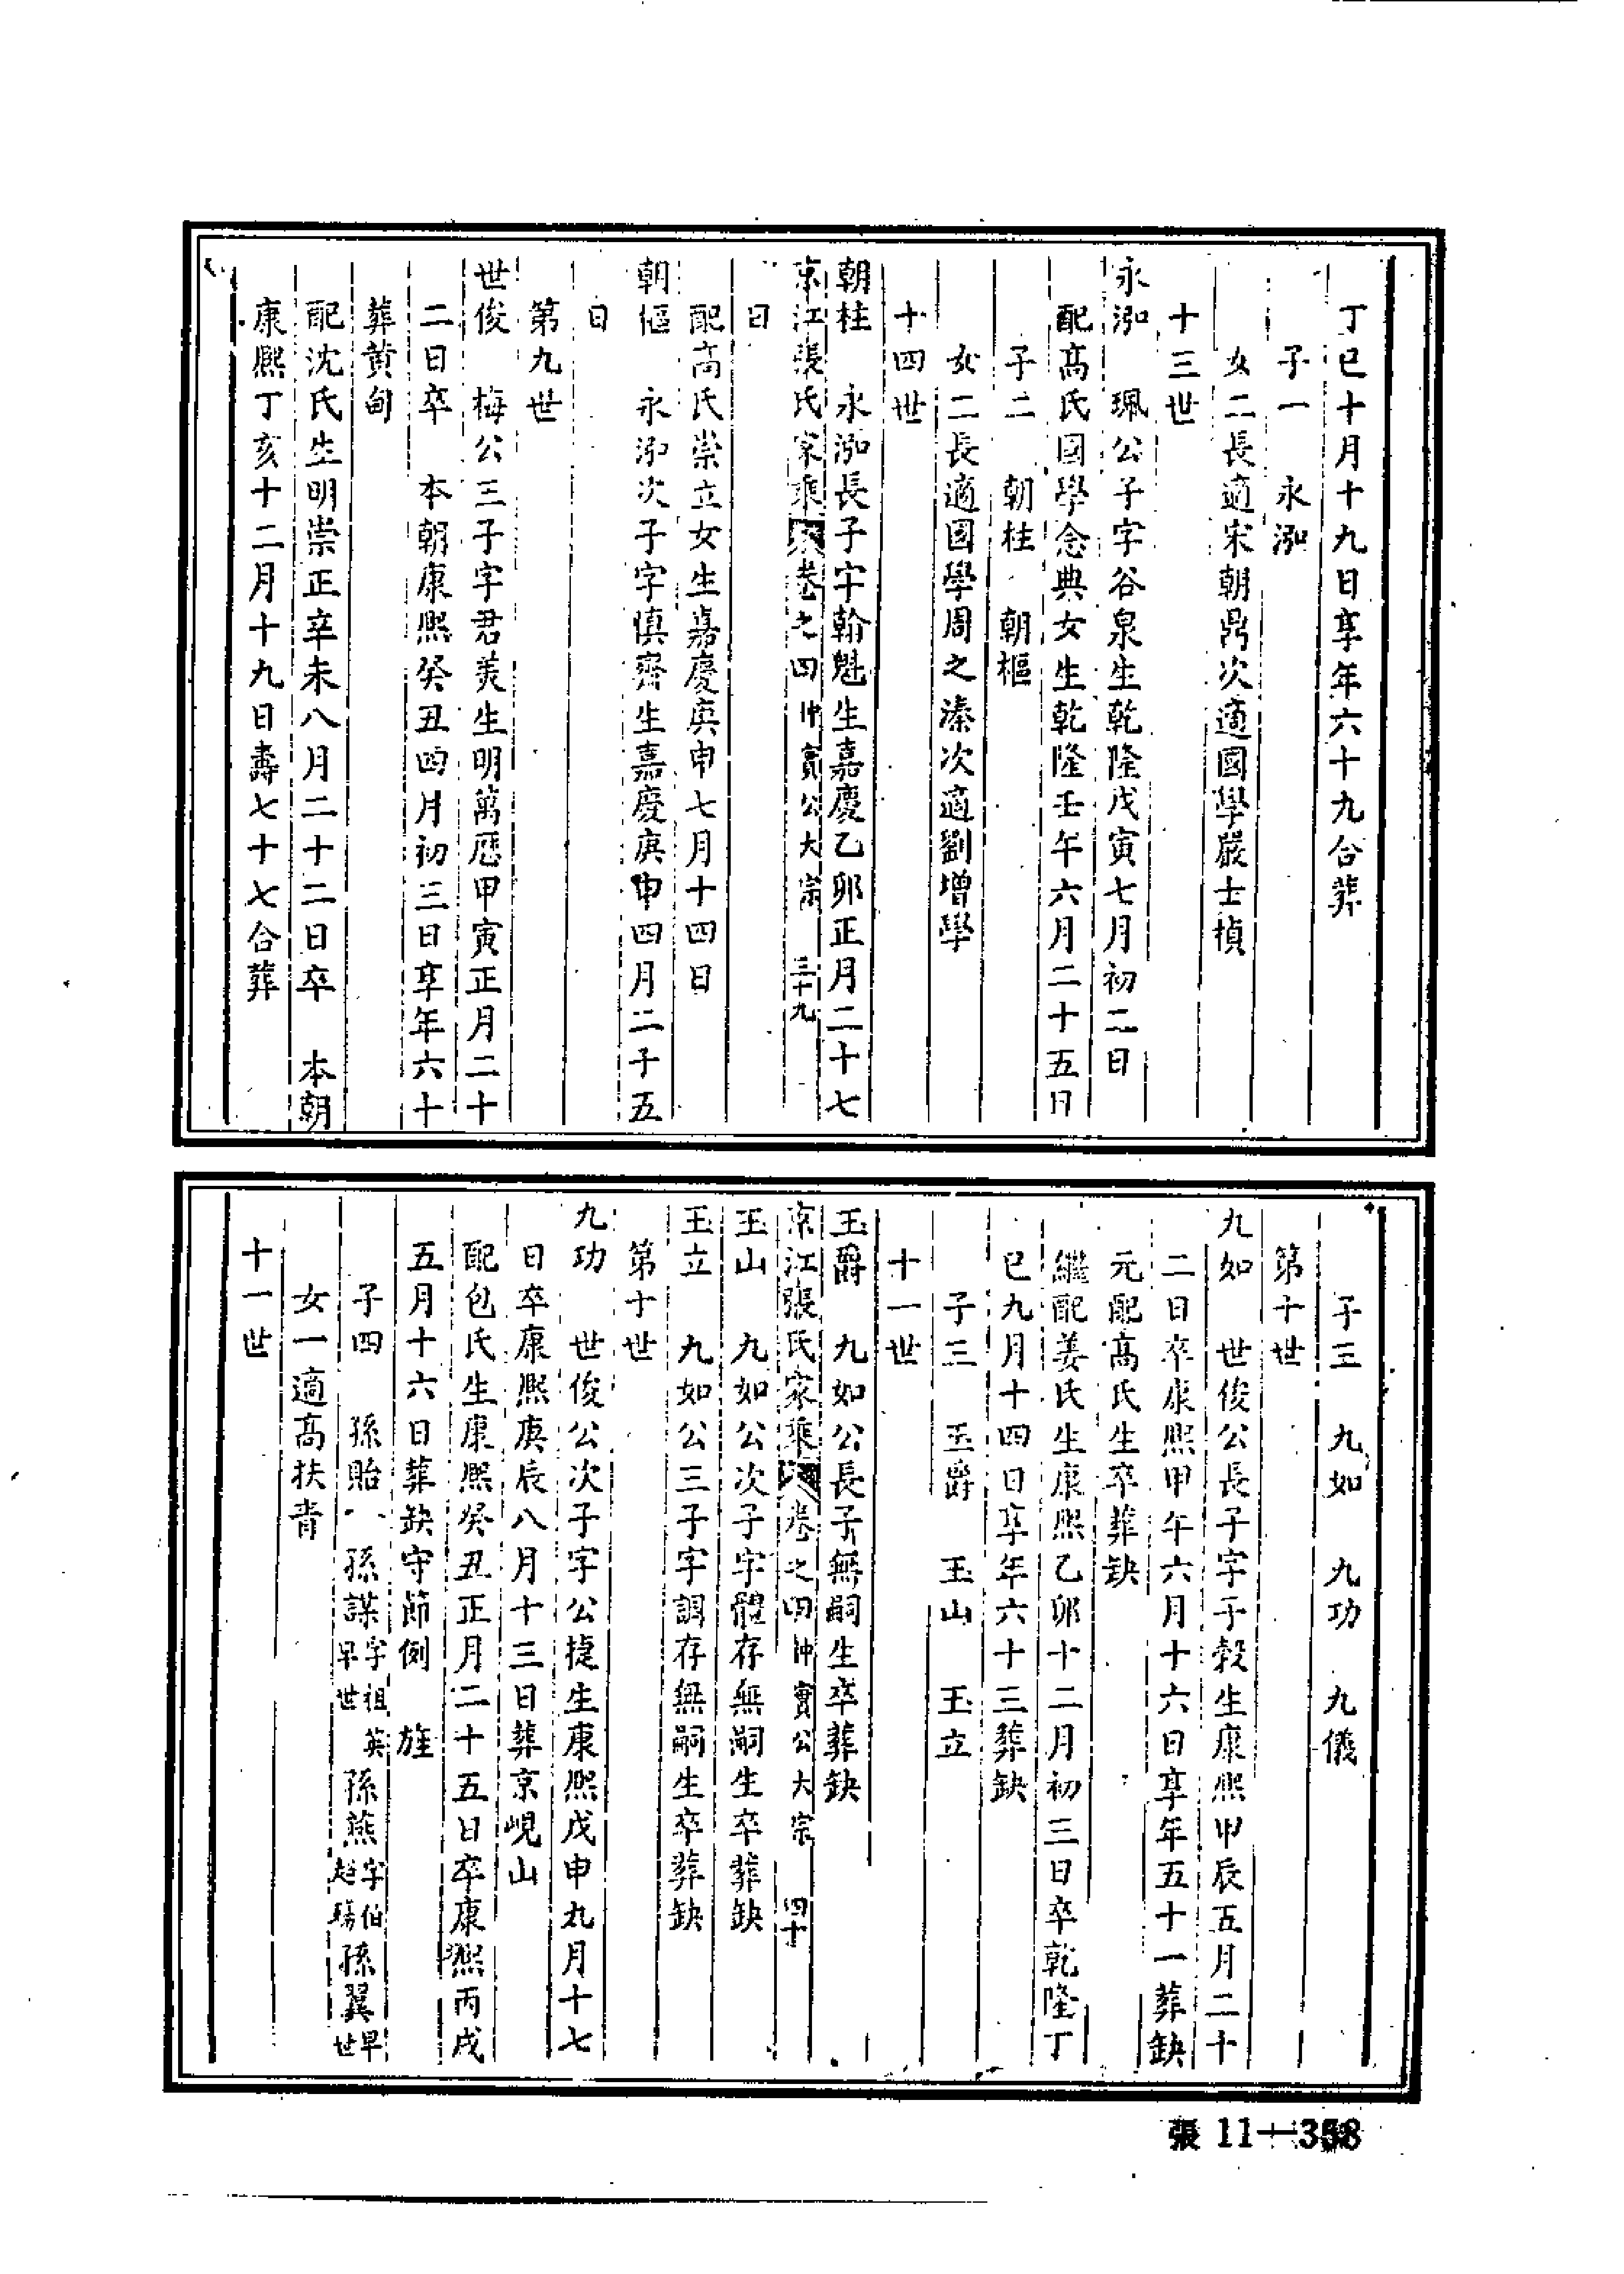 丁巳十月十九日享年六十九合葬
子一　永泓
女二長適宋朝鼎次適國學嚴士楨
十三世
永泓　珮公子字谷泉生乾隆戊寅七月初二日
配高氏國學念典女生乾隆壬午六月二十五日
子二　朝柱　朝樞
女二長適國學周之溱次適劉增學
十四世
朝柱　永泓長子字翰魁生嘉慶乙卯正月二十七
京江張氏家乘　卷之四　仲實公大宗　三十九
日
配高氏崇立女生嘉慶庚申七月十四日
朝樞　永泓次子字慎齋生嘉慶庚申四月二十五
日
第九世
世俊　梅公三子字君美生明萬歷甲寅正月二十
二日卒　本朝康熙癸丑四月初三日享年六十
葬黃甸
配沈氏生明崇正辛未八月二十二日卒　本朝
康熙丁亥十二月十九日壽七十七合葬
子三　九如　九功　九儀
第十世
九如　世俊公長子字子穀生康熙甲辰五月二十
二日卒康熙甲午六月十六日享年五十一葬缺
元配高氏生卒葬缺
繼配姜氏生康熙乙卯十二月初三日卒乾隆丁
巳九月十四日享年六十三葬缺
子三　玉爵　玉山　玉立
十一世
玉爵　九如公長子無嗣生卒葬缺
京江張氏家乘　卷之四　仲實公大宗　四十
玉山　九如公次子字體存無嗣生卒葬缺
玉立　九如公三子字調存無嗣生卒葬缺
第十世
九功　世俊公次子字公捷生康熙戊申九月十七
日卒康熙庚辰八月十三日葬京峴山
配包氏生康熙癸丑正月二十五日卒康熙丙戌
五月十六日葬缺守節例　旌
子四　孫貽　孫謀字祖英早世　孫燕字伯超殤　孫翼早世
女一適高扶青
十一世
張 11—358